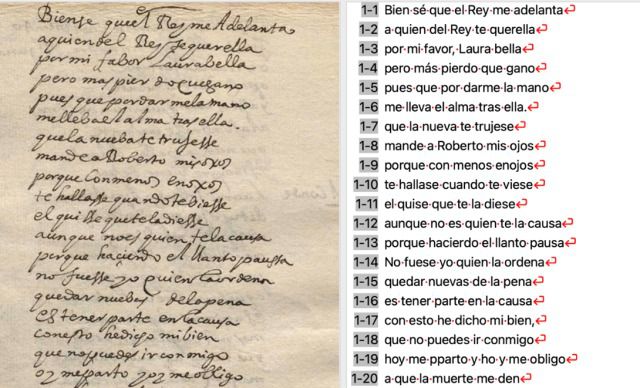 Biense que el Rey me Adelanta
a quien del Rey se querella
por mi fabor Laurabella
pero mas pierdo que gano
pues que por dar me la mano
me lleba el alma tras ella.
que la nueba te trujesse
mande a Roberto mis oxos
porque con menos enoxos
te hallasse quando te biesse
el quisse que te la diesse
aunque no es quien te la causa
porque haciendo el llanto paussa
no fuesse yo quien la ordena
quedar nuebas de la pena
es tener parte en la caussa
con esto he dicho mi bien
que no puedes ir conmigo
oy me parto y oy me obligo
1-1 Bien sé que el Rey me adelanta
1-2 a quien del Rey te querella
1-3 por mi favor, Laura bella
1-4 pero más pierdo que gano
1-5 pues que por darme la mano
1-6 me lleva el alma tras ella.
1-7 que la nueva te trujese
1-8 mande a Roberto mis ojos
1-9 porque con menos enojos
1-10 te hallase cuando te viese
1-11 el quise que te la diese
1-12 aunque no es quien te la causa
1-13 porque hacierdo el llanto pausa
1-14 No fuese yo quien la ordena
1-15 quedar nuevas de la pena
1-16 es tener parte en la causa
1-17 con esto he dicho mi bien,
1-18 que no puedes ir conmigo
1-19 hoy me pparto y ho y me obligo
1-20 a que la muerte me den